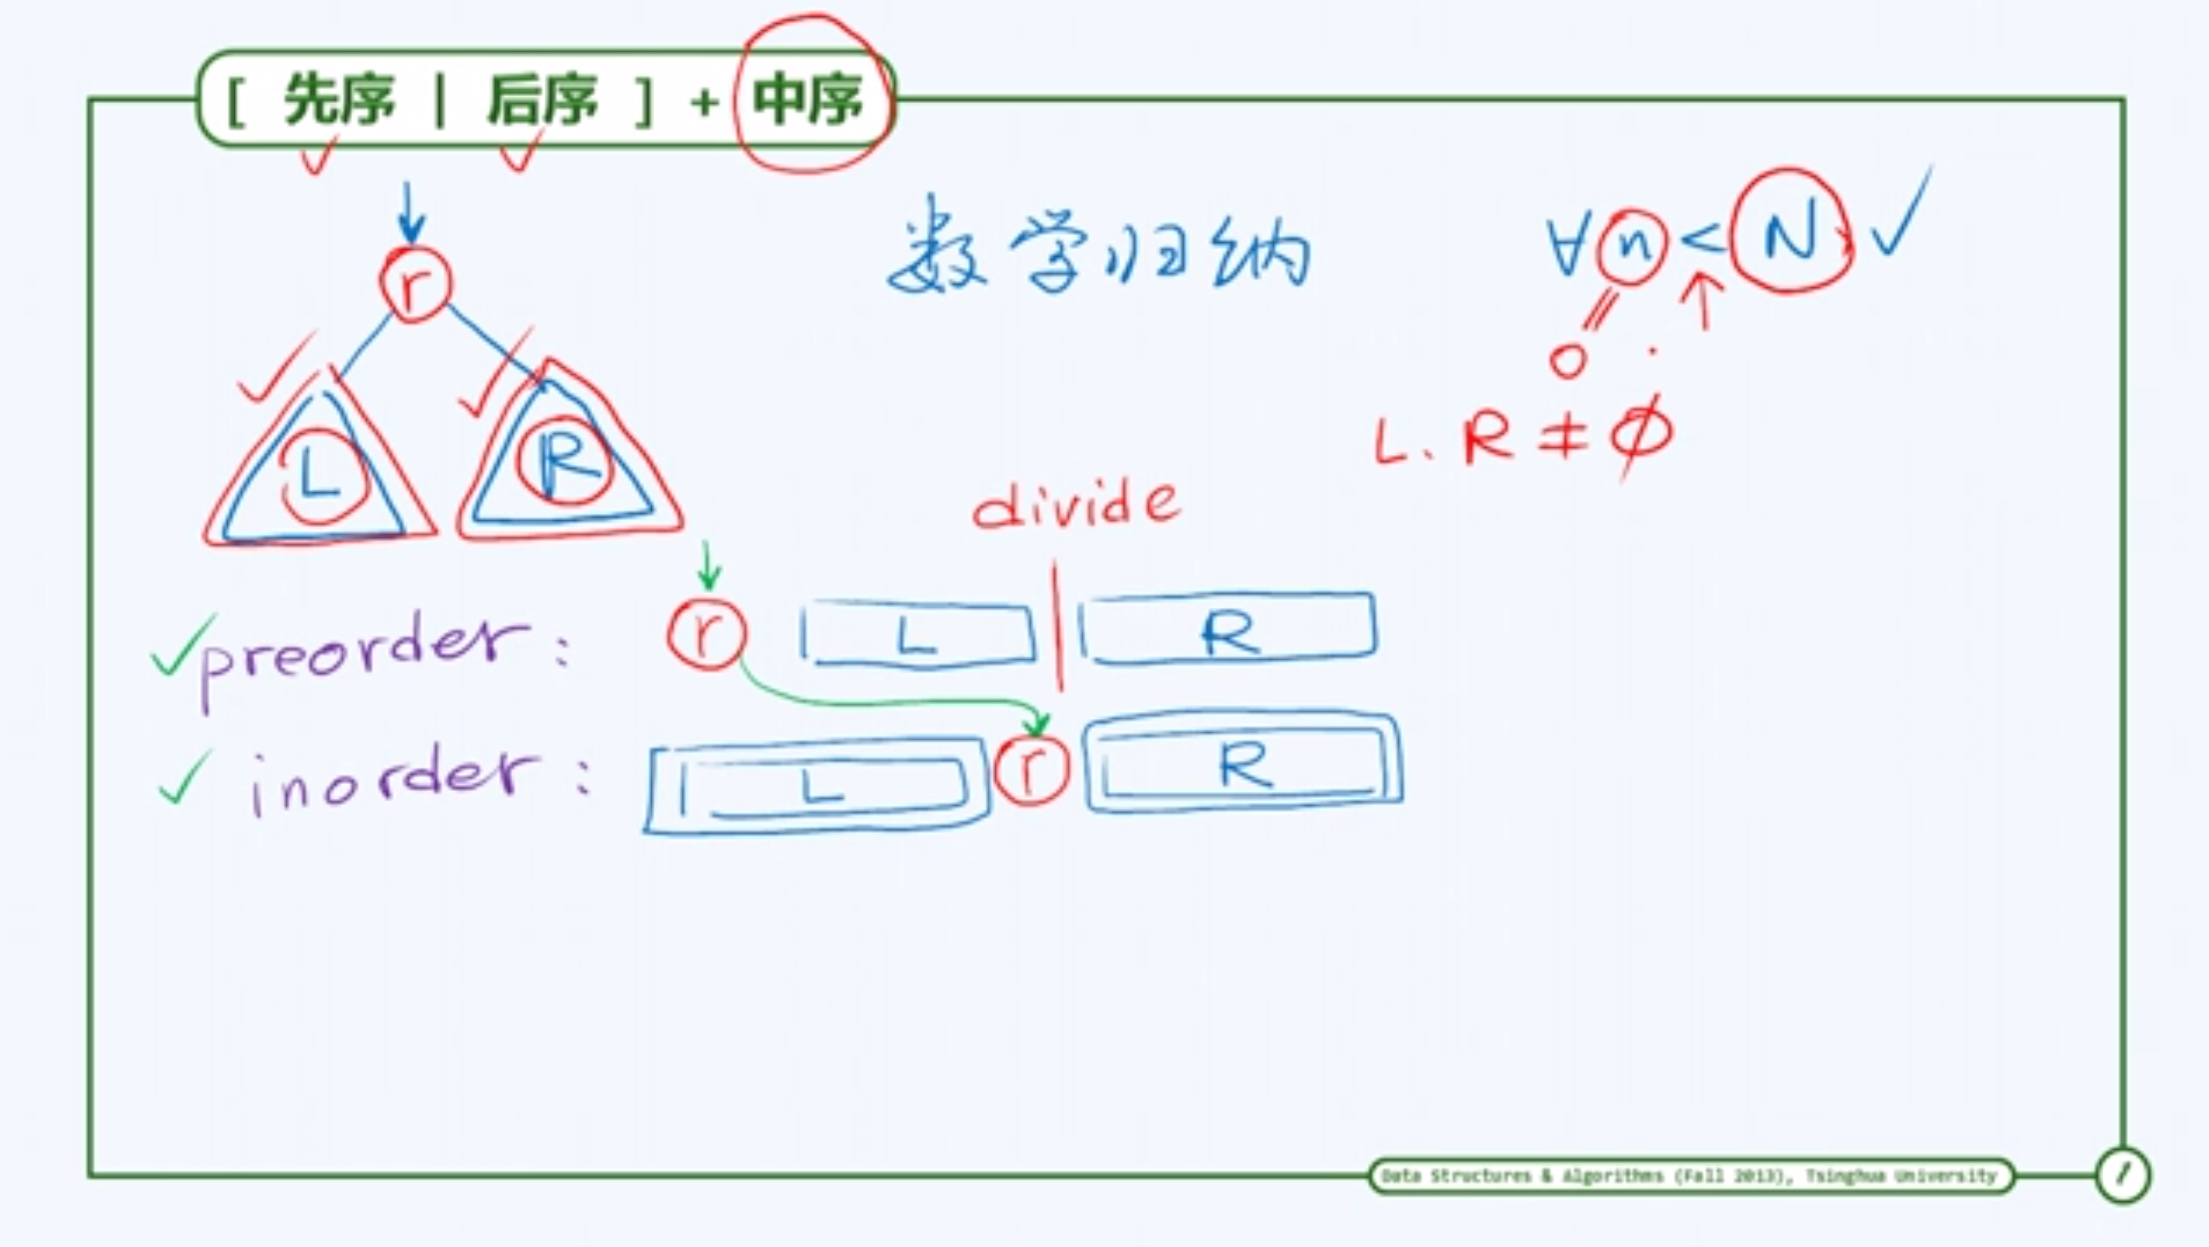 [ 先序 | 后序 ] + 中序
数学归纳
∀ n < N
0
r
L. R ≠ ∅
L R
divide
preorder : r L R
inorder : L r R
Data Structures & Algorithms (Fall 2013), Tsinghua University